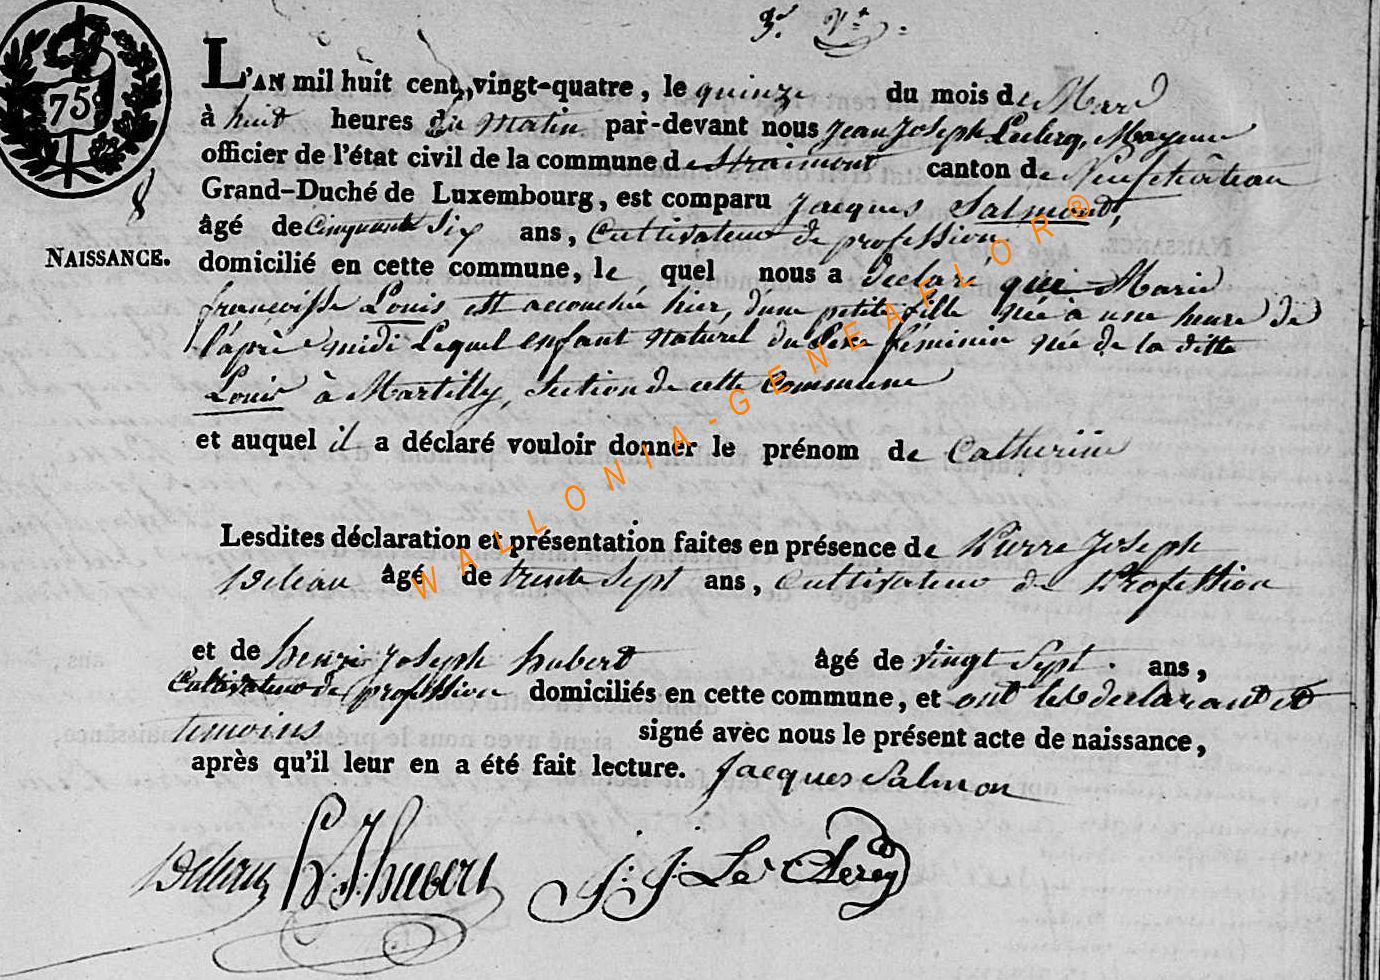 3.e Vt.
75
L'AN mil huit cent, vingt-quatre, le quinze du mois de Mars
à huit heures du matin par-devant nous Jean Joseph Leclerq, Mayeur
officier de l'état civil de la commune de Straimont canton de Neufchâteau
Grand-Duché de Luxembourg, est comparu Jacques Salmond,
âgé de Cinquante Six ans, Cultivateur de profession
NAISSANCE.
domicilié en cette commune, le quel nous a déclaré que Marie
françoisse Louis est accouchée hier, d'une petite fille née à une heure de
l'après midi Lequel enfant naturel du Sexe féminin née de la ditte
Louis à Martilly, Section de cette Commune
et auquel il a déclaré vouloir donner le prénom de Catherine
Lesdites déclaration et présentation faites en présence de Pierre Joseph
âgé de trente Sept ans, Cultivateur de Profession
et de henri Joseph hubert âgé de Vingt Sept ans,
Cultivateur de profession domiciliés en cette commune, et ont les declarant et
temoins signé avec nous le présent acte de naissance,
après qu'il leur en a été fait lecture. Jacques Salmon
h. J. hubert J. J. Le Clercq
WALLONIA-GENEAFLOR®